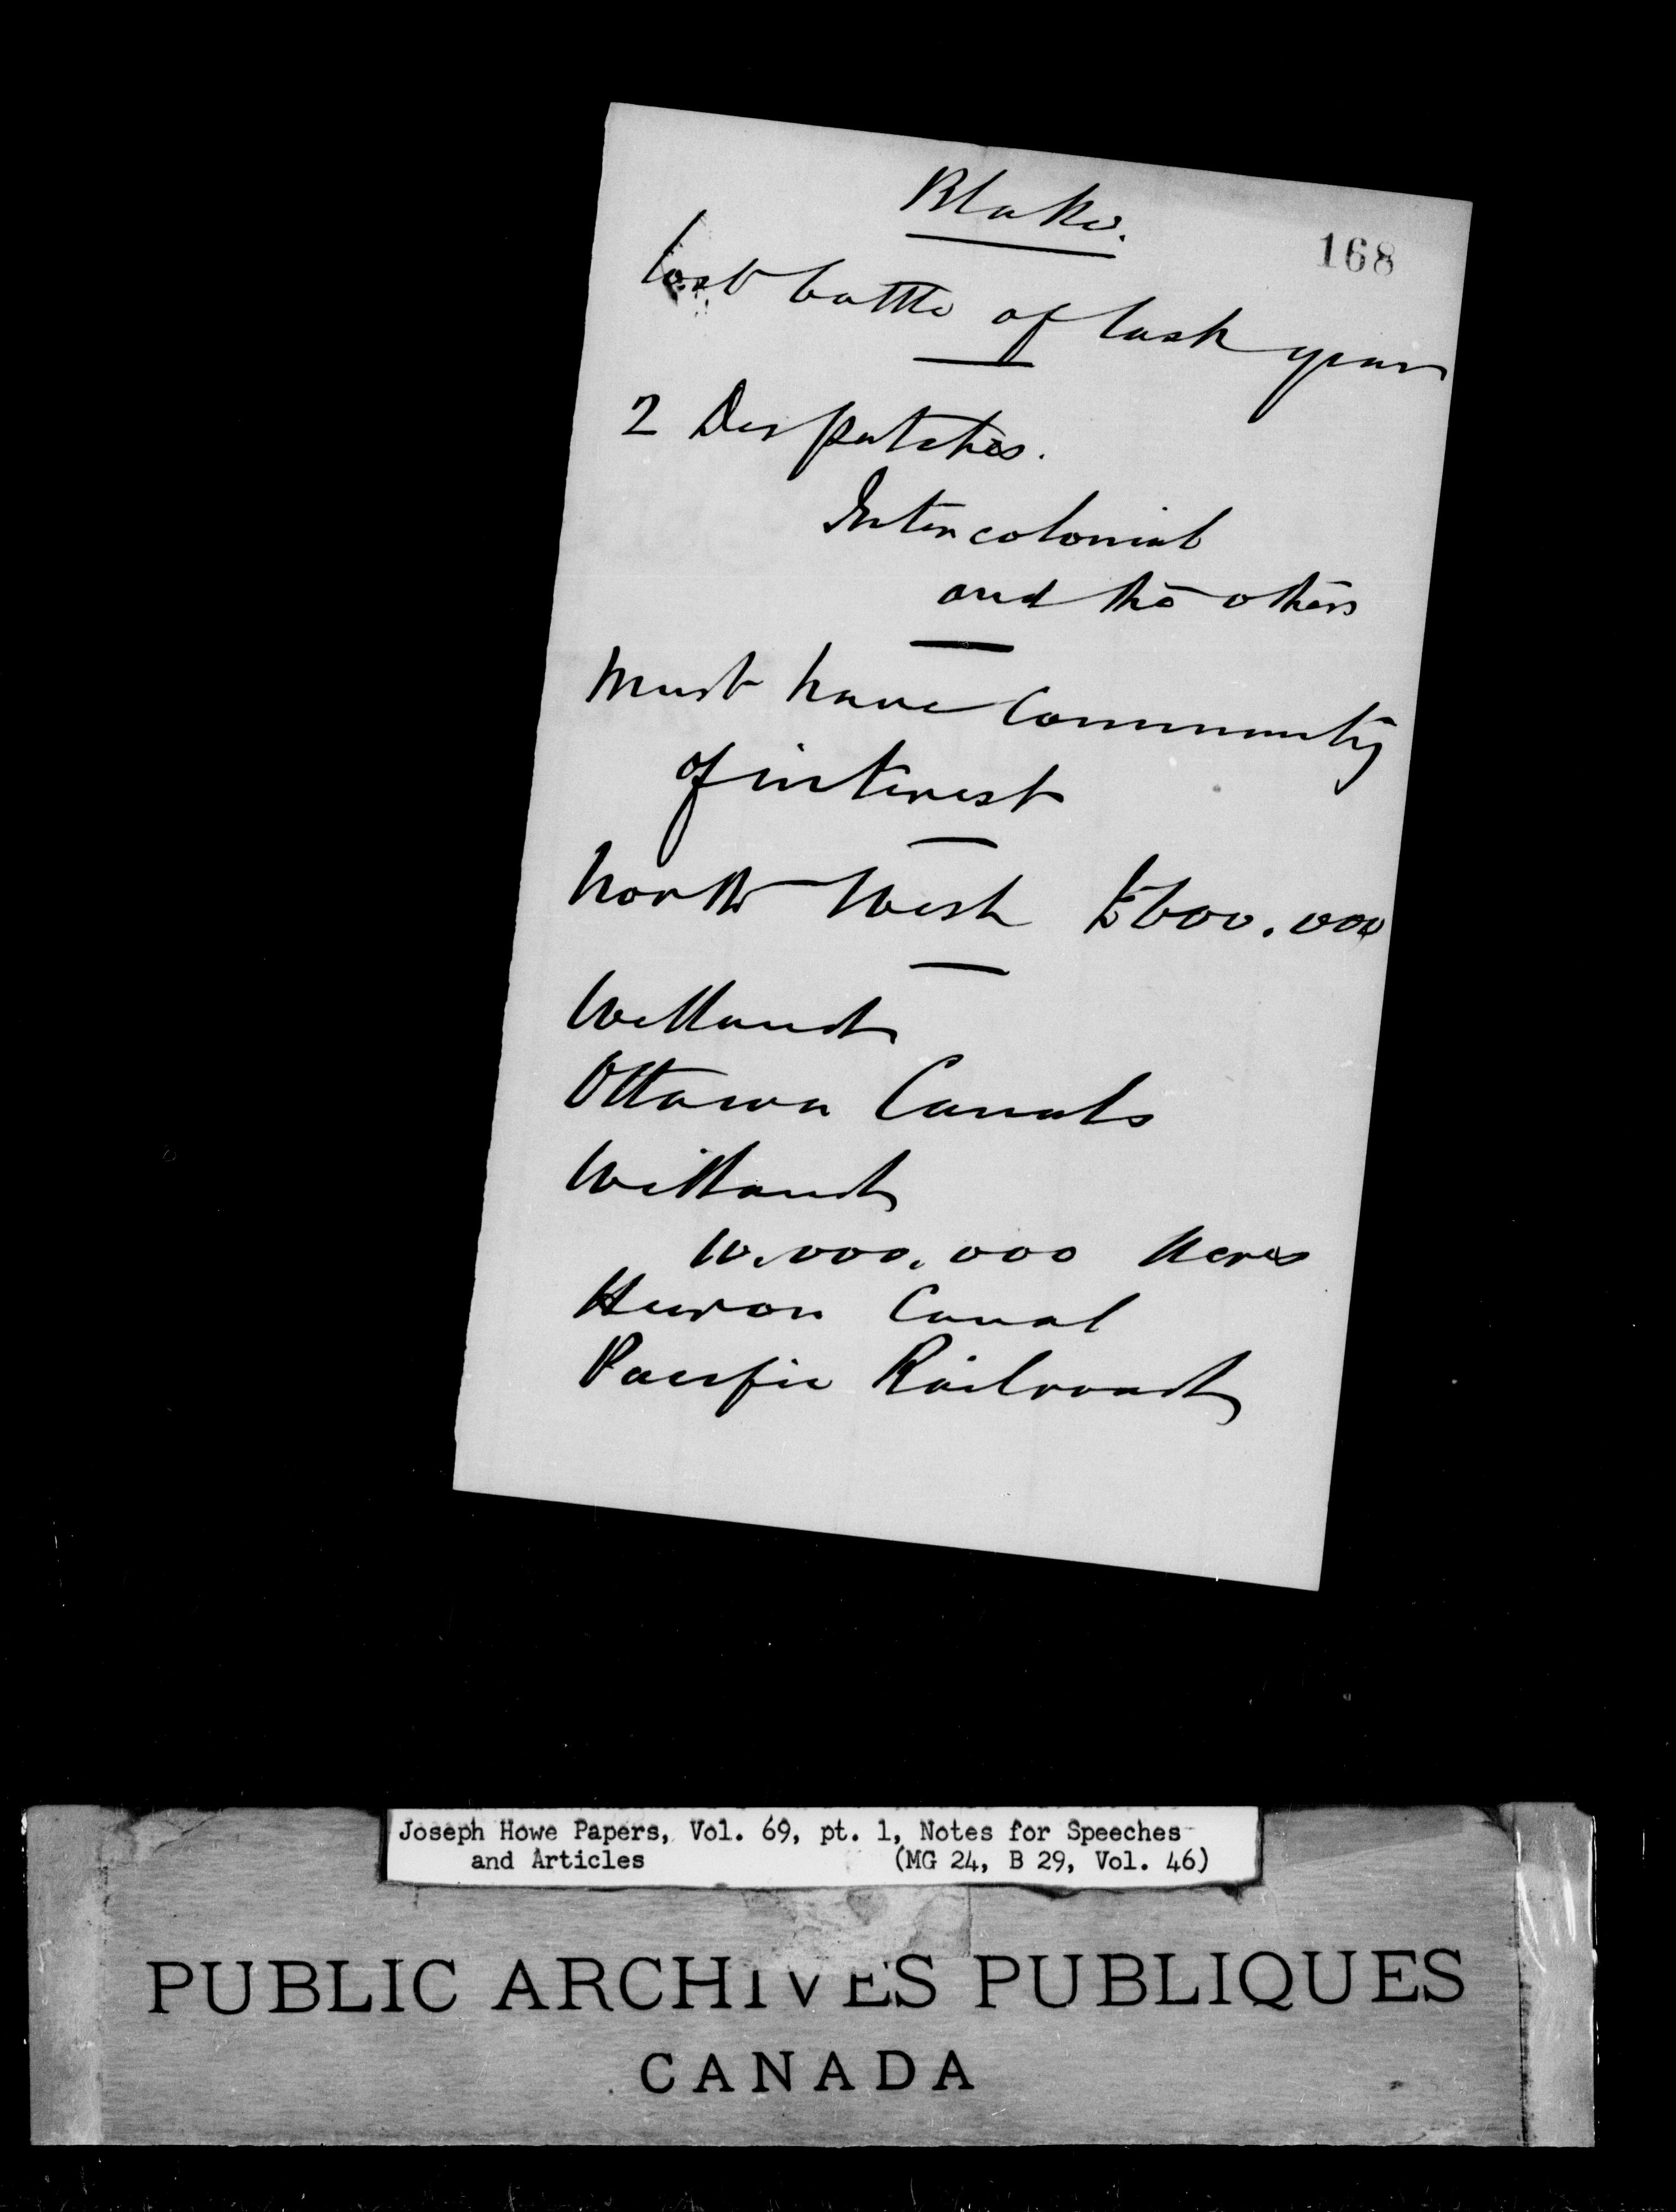 Blake.
168
lost battle of last year
2 Despatches.
Intercolonial
and the others
Must have Community
of interest
North West £600.000
Welland
Ottawa Canals
Welland
10.000.000 Acres
Huron Canal
Pacific Railroad
Joseph Howe Papers, Vol. 69, pt. 1, Notes for Speeches
and Articles (MG 24, B 29, Vol. 46)
PUBLIC ARCHIVES PUBLIQUES
CANADA